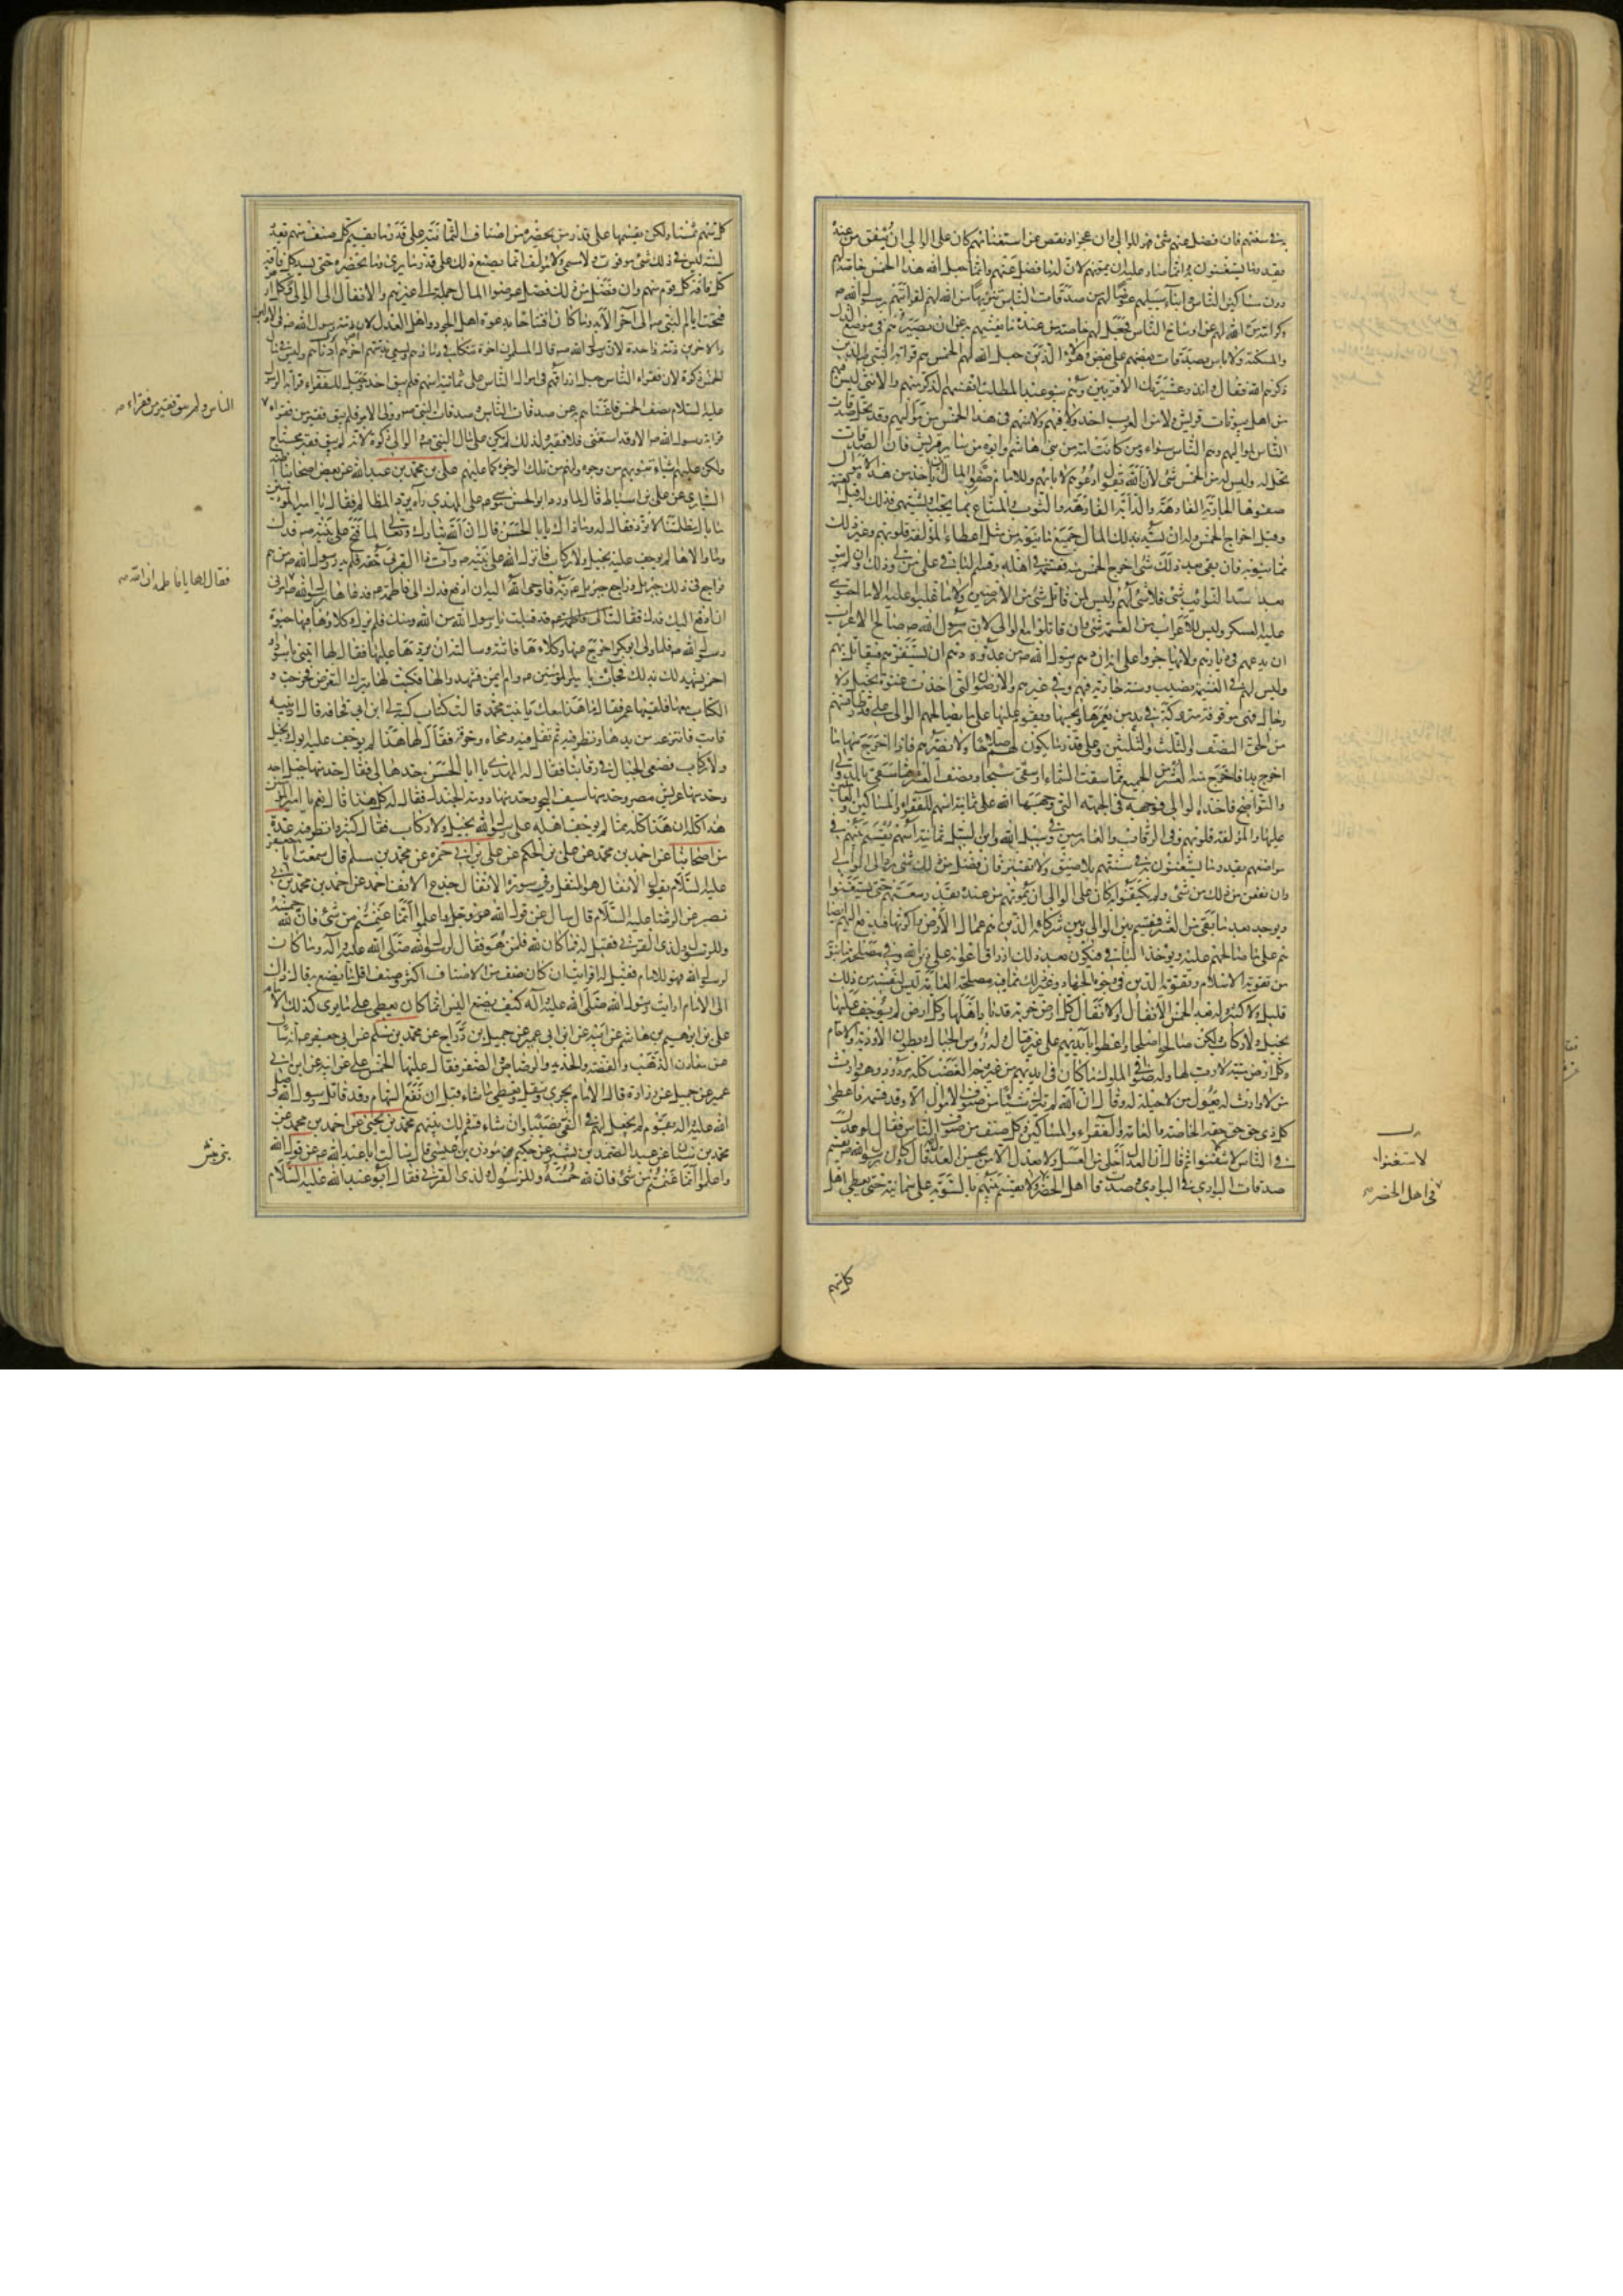 في سنتهم فان فضل عنهم شئ فهو للوالى وان عجز او نقص عن استغنائهم كان على الوالى ان ينفق من عنده
بقدر ما يستغنون به وانما صار عليه ان يمونهم لان له ما فضل عنهم وانما جعل الله هذا الخمس خاصة لهم
دون مساكين الناس وابناء سبيلهم عوضا لهم من صدقات الناس تنزيها من الله لهم لقرابتهم برسول الله ص
وكرامة من الله لهم عن اوساخ الناس فجعل لهم خاصة من عنده ما يغنيهم به عن ان يصيرهم في موضع الذل
والمسكنة ولا باس بصدقات بعضهم على بعض وهؤلاء الذين جعل الله لهم الخمس هم قرابة النبي الذين
ذكرهم الله فقال وانذر عشيرتك الاقربين وهم بنو عبد المطلب انفسهم الذكر منهم والانثى ليس فيهم
من اهل بيوتات قريش ولا من العرب احد ولا فيهم ولا منهم في هذا الخمس من مواليهم وقد تحل صدقات
الناس لمواليهم وهم والناس سواء ومن كانت امه من بنى هاشم وابوه من سائر قريش فان الصدقات
تحل له وليس له من الخمس شئ لان الله يقول ادعوهم لابائهم وللامام صفو المال ان ياخذ من هذه الاموال
صفوها الجارية الفارهة والدابة الفارهة والثوب والمتاع بما يحب ويشتهى فذلك له قبل القسمة
وقبل اخراج الخمس وله ان يسد بذلك المال جميع ما ينوبه من مثل اعطاء المؤلفة قلوبهم وغير ذلك
مما ينوبه فان بقى بعد ذلك شئ اخرج الخمس منه فقسمه في اهله وقسم الباقى على من ولى ذلك وان لم يبق
بعد سد النوائب شئ فلا شئ لهم وليس لمن قاتل شئ من الارضين ولا ما غلبوا عليه الا ما احتوى
عليه العسكر وليس للاعراب من القسمة شئ وان قاتلوا مع الوالى لان رسول الله ص صالح الاعراب
ان يدعهم في ديارهم ولا يهاجروا على انه ان دهم رسول الله ص من عدوه دهم ان يستنفزهم فيقاتل بهم
وليس لهم في الغنيمة نصيب وسنته جارية فيهم وفي غيرهم والارضون التى اخذت عنوة بخيل ولا
رجال فهى موقوفة متروكة في يد من يعمرها ويحييها ويقوم عليها على ما يصالحهم الوالى على قدر طاقتهم
من الحق النصف والثلث والثلثين وعلى قدر ما يكون لهم صلاحا ولا يضرهم فاذا اخرج منها ما
اخرج بدا فاخرج منه العشر من الجميع مما سقت السماء او سقى سيحا ونصف العشر مما سقى بالدوالى
والنواضح فاخذه الوالى فوجهه في الجهة التى وجهها الله على ثمانية اسهم للفقراء والمساكين والعاملين
عليها والمؤلفة قلوبهم وفى الرقاب والغارمين وفي سبيل الله وابن السبيل ثمانية اسهم تقسم بينهم في
مواضعهم بقدر ما يستغنون به في سنتهم بلا ضيق ولا تقتير فان فضل من ذلك شئ رد الى الوالى
وان نقص من ذلك من شئ ولم يكتفوا به كان على الوالى ان يمونهم من عنده بقدر سعتهم حتى يستغنوا
ويؤخذ بعد ما بقى من العشر فيقسم بين الوالى وبين شركائه الذين هم عمال الارض واكرتها فيدفع اليهم انصباؤهم
على ما صالحهم عليه ويؤخذ الباقى فيكون بعد ذلك ارزاق اعوانه على دين الله وفي مصلحة ما ينوبه
من تقوية الاسلام وتقوية الدين في وجوه الجهاد وغير ذلك مما فيه مصلحة العامة ليس لنفسه من ذلك
قليل ولا كثير وله بعد الخمس الانفال والانفال كل ارض خربة قد باد اهلها وكل ارض لم يوجف عليها
بخيل ولا ركاب ولكن صالحوا صلحا واعطوا بايديهم على غير قتال وله رؤوس الجبال وبطون الاودية والاجام
وكل ارض ميتة لا رب لها وله صوافى الملوك ما كان في ايديهم من غير وجه الغصب كله مردود وهو وارث
من لا وارث له يعول من لا حيلة له وقال ان الله لم يترك شيئا من صنوف الاموال الا وقد قسمه فاعطى
كل ذى حق حقه الخاصة والعامة والفقراء والمساكين وكل صنف من صنوف الناس فقال لو عدل
في الناس لاستغنوا ثم قال ان العدل احلى من العسل ولا يعدل الا من يحسن العدل قال وكان رسول الله ص يقسم
صدقات البوادي في البوادي وصدقات اهل الحضر ولا يقسم بينهم بالسوية على ثمانية حتى يعطى اهل
لاستغنوا
في اهل الحضر
كل سهم
كل سهم ثمنا ولكن يقسمها على قدر من يحضره من اصناف الثمانية على قدر ما يقيم كل صنف منهم يقدر
لسنته ليس في ذلك شئ موقوت ولا مسمى ولا مؤلف انما يصنع ذلك على قدر ما يرى وما يحضره حتى يسد كل فاقة
كل قوم منهم وان فضل من ذلك فضل عرضوا المال جملة الى غيرهم والانفال الى الوالى وكل ارض
فتحت ايام النبى ص الى آخر الابد وما كان افتتاحا بدعوة اهل الجور واهل العدل لان ذمة رسول الله ص في الاولين
والاخرين ذمة واحدة لان رسول الله ص قال المسلمون اخوة تتكافى دماؤهم ويسعى بذمتهم ادناهم وليس في مال
الخمس زكوة لان فقراء الناس جعل ارزاقهم في اموال الناس على ثمانية اسهم فلم يبق احد وجعل للفقراء قرابة الرسول
عليه السلام نصف الخمس فاغناهم به عن صدقات الناس وصدقات النبى ص وولى الامر فلم يبق فقير من فقراء
قرابة رسول الله ص الا وقد استغنى فلا فقير ولذلك لم يكن على مال النبى ص والوالى زكوة لانه لم يبق فقير محتاج
ولكن عليهم اشياء تنوبهم من وجوه ولهم من تلك الوجوه كما عليهم على بن محمد بن عبد الله عن بعض اصحابنا اظنه
السيارى عن على بن اسباط قال لما ورد ابو الحسن موسى ع على المهدى راه يرد المظالم فقال يا امير المؤمنين
ما بال مظلمتنا لا ترد فقال له وما ذاك يا با الحسن قال ان الله تبارك وتعالى لما فتح على نبيه ص فدك
وما والاها لم يوجف عليه بخيل ولا ركاب فانزل الله على نبيه ص وآت ذا القربى حقه فلم يدر رسول الله ص من هم
فراجع في ذلك جبريل وراجع جبريل ع ربه فاوحى الله اليه ان ادفع فدك الى فاطمة ع فدعاها رسول الله
ان ادفع اليك فدك فقالت قد قبلت يا رسول الله من الله ومنك فلم يزل وكلاؤها فيها حيوة
رسول الله ص فلما ولى ابو بكر اخرج عنها وكلاءها فاتته وسالته ان يردها عليها فقال لها ايتينى باسود
او احمر يشهد لك بذلك فجاءت بامير المؤمنين ع وام ايمن فشهدا لها فكتب لها بترك التعرض فخرجت و
الكتاب معها فلقيها عمر فقال ما هذا معك يا بنت محمد قالت كتاب كتبه لى ابن ابى قحافة قال ارينيه
فابت فانتزعه من يدها ونظر فيه ثم تفل فيه ومحاه وخرقه فقال لها هذا لم يوجف عليه ابوك بخيل
ولا ركاب فضعى الحبال في رقابنا فقال له المهدى يا ابا الحسن حدها لى فقال حد منها جبل احد
وحد منها عريش مصر وحد منها سيف البحر وحد منها دومة الجندل فقال له كل هذا قال نعم يا امير المؤمنين
هذا كله ان هذا كله مما لم يوجف اهله على رسول الله بخيل ولا ركاب فقال كثير وانظر فيه عدة
من اصحابنا عن احمد بن محمد عن على بن الحكم عن على بن ابي حمزة عن محمد بن مسلم قال سمعت ابا جعفر
عليه السلام يقول الانفال هو النفل وفي سورة الانفال جدع الانف احمد عن احمد بن محمد بن ابي
نصر عن الرضا عليه السلام قال سال عن قول الله عز وجل واعلموا انما غنمتم من شئ فان لله خمسه
وللرسول ولذى القربى فقيل له فما كان لله فلمن هو فقال لرسول الله صلى الله عليه وآله وما كان
لرسول الله فهو للامام فقيل له افرايت ان كان صنف من الاصناف اكثر وصنف اقل ما يصنع به قال ذاك
الى الامام ارايت رسول الله صلى الله عليه وآله كيف يصنع اليس انما كان يعطى على ما يرى كذلك الامام
على بن ابرهيم بن هاشم عن ابيه عن ابن ابى عمير عن جميل بن دراج عن محمد بن مسلم عن ابى جعفر ع انه سال
عن معادن الذهب والفضة والحديد والرصاص والصفر فقال عليها الخمس على عن ابيه عن ابن ابى
عمير عن جميل عن زرارة قال الامام يجرى وينفل ويعطى ما شاء قبل ان تقع السهام وقد قاتل رسول الله صلى
الله عليه وآله بقوم لم يجعل لهم في الفئ نصيبا وان شاء قسم ذلك بينهم محمد بن يحيى عن احمد بن محمد عن
محمد بن سنان عن عبد الصمد بن بشير عن حكيم مؤذن بن عيسى قال سالت ابا عبد الله ع عن قول الله
واعلموا انما غنمتم من شئ فان لله خمسه وللرسول ولذى القربى فقال ابو عبد الله عليه السلام
الناس ولم يبق فقير من فقراء
فقال لها يا فاطمة ان الله